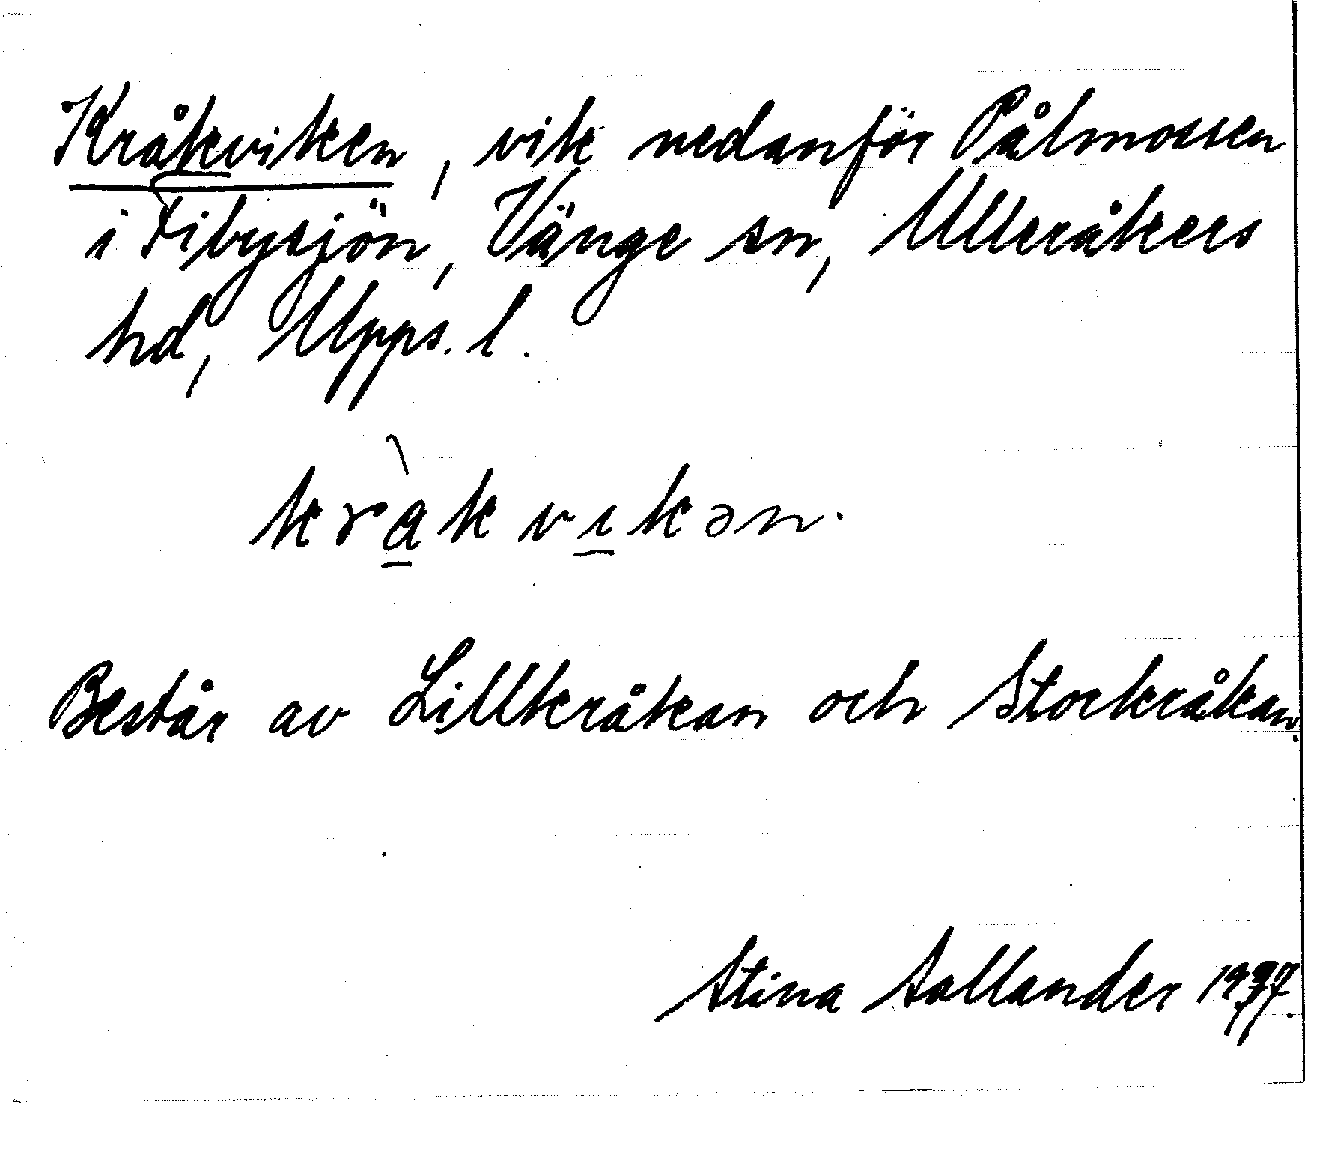 Kråkviken, vik nedanför Pålmossen
i Fibysjön, Vänge sn, Ulleråkers
hd, Upps. l.
kràkvikən.
Består av Lillkråkan och Storkråkan.
Stina Sallander 1937.